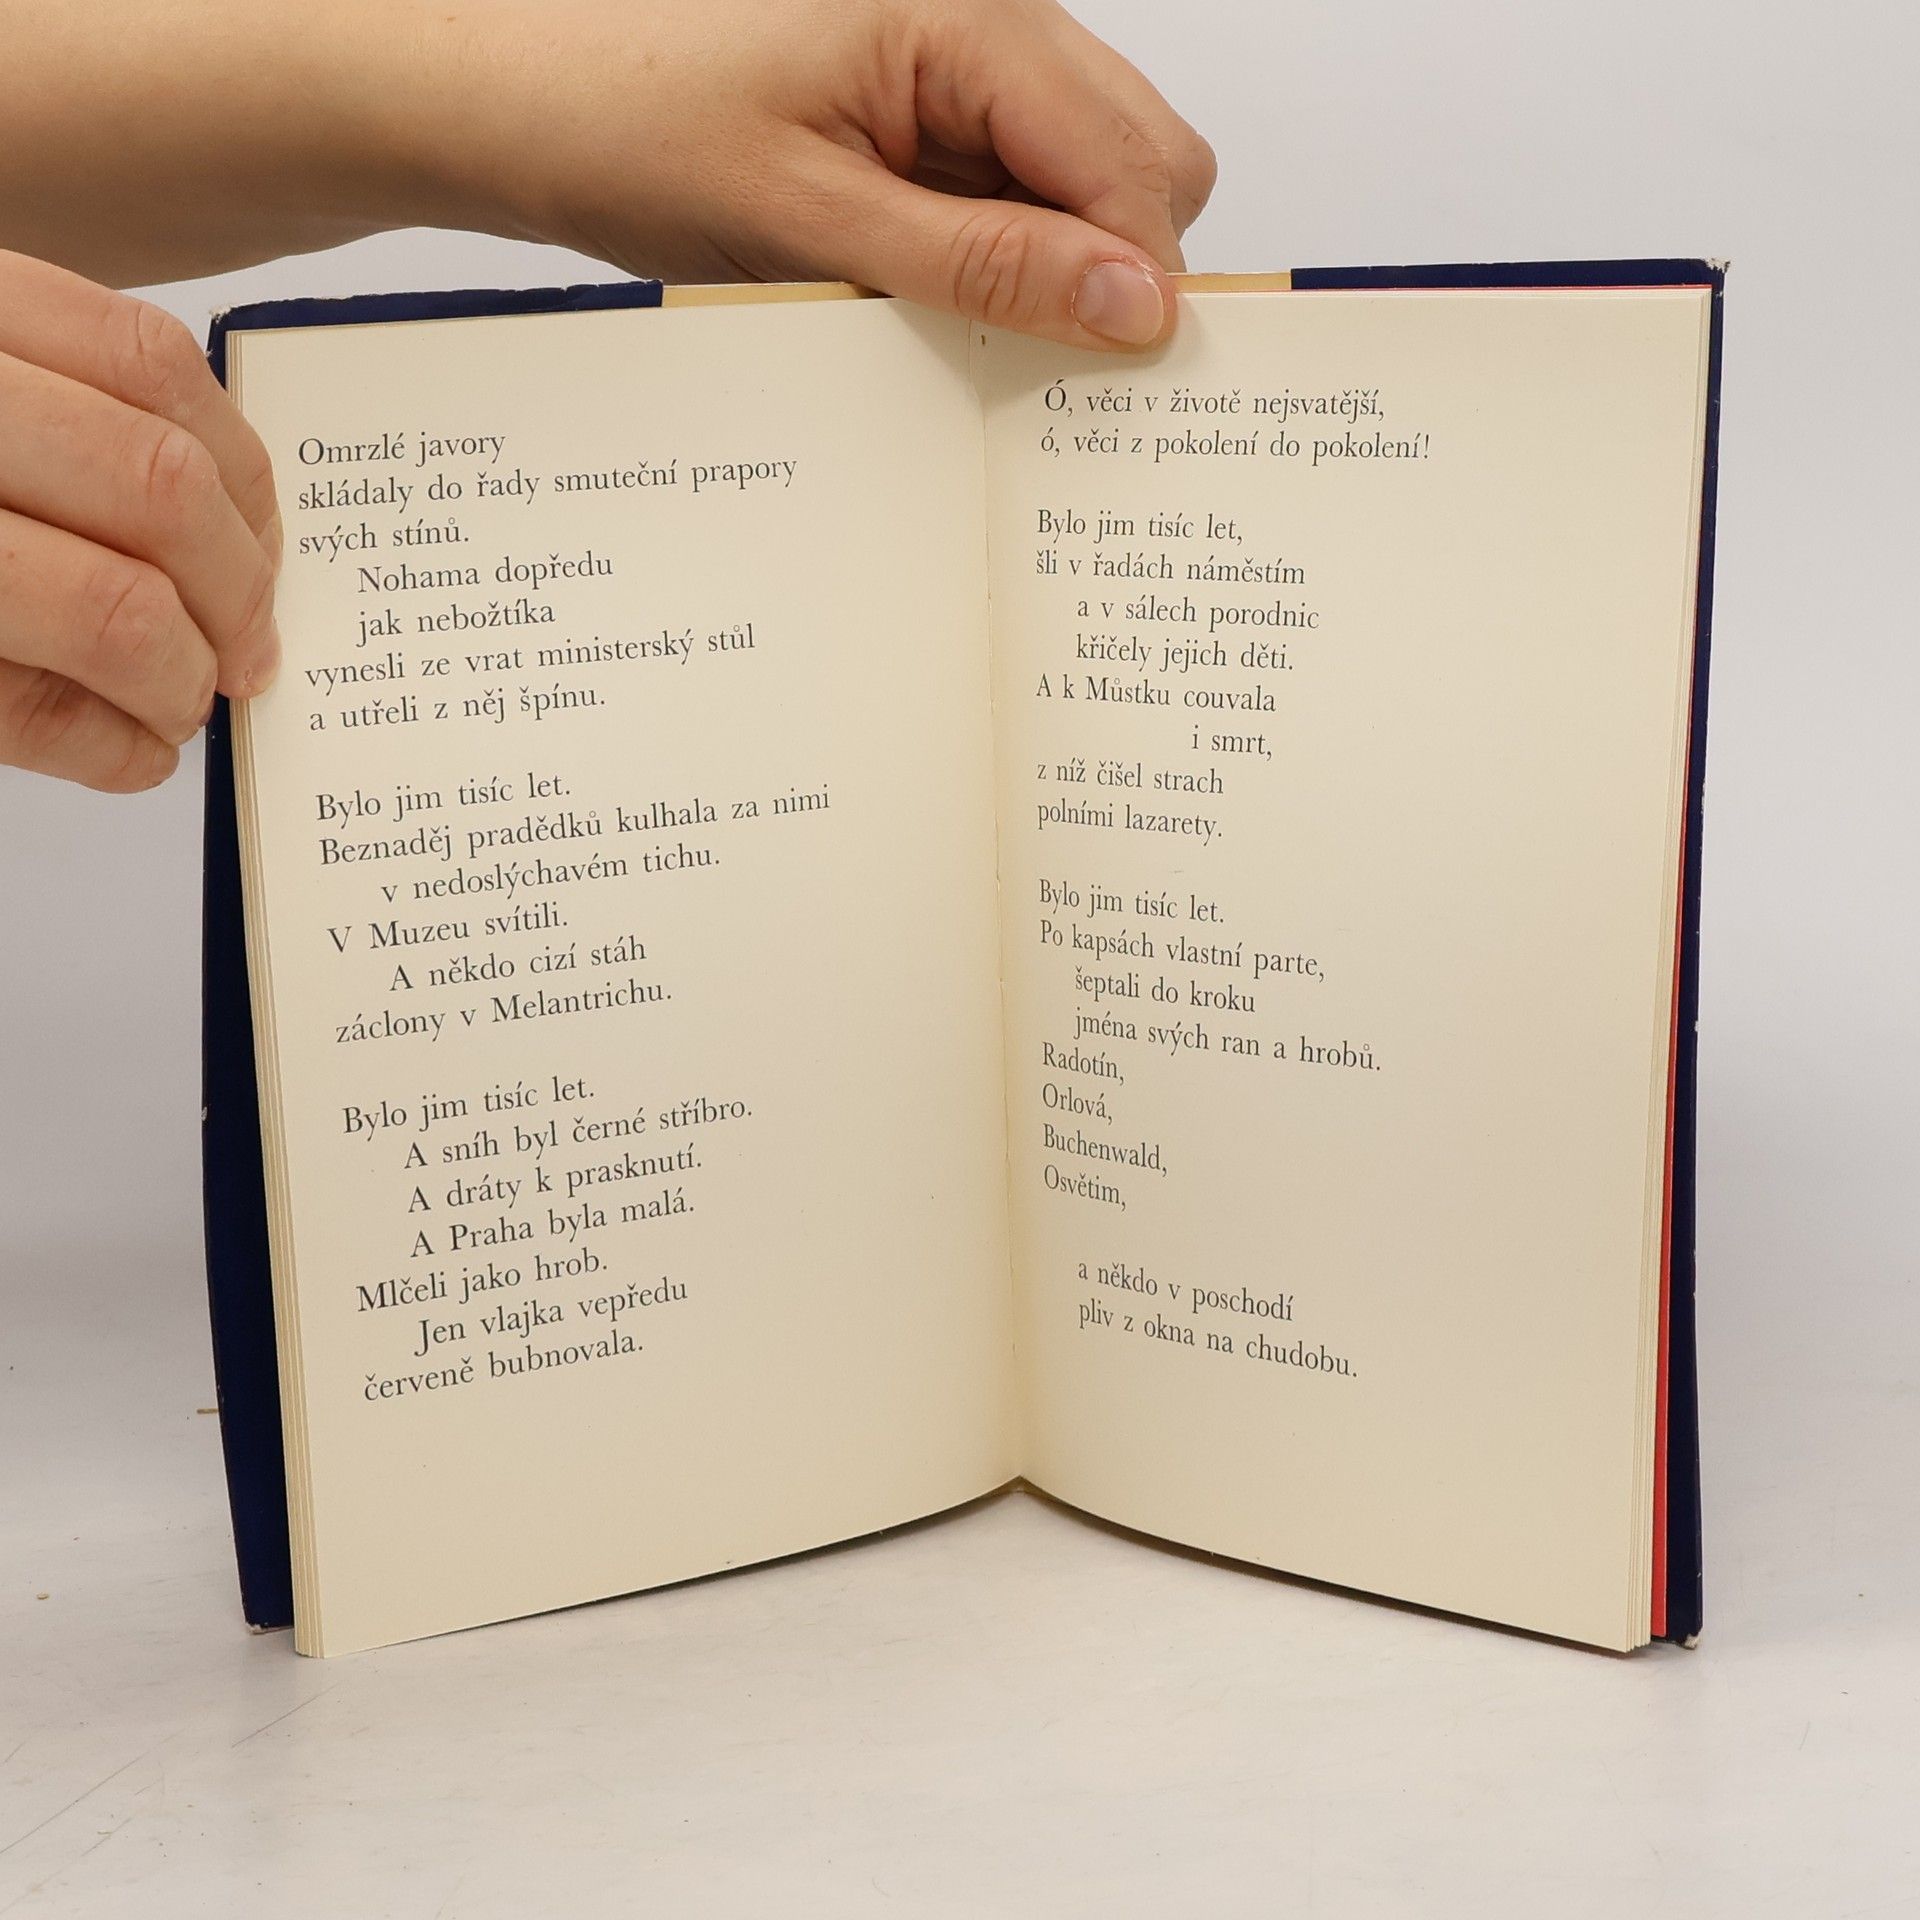 Omrzlé javory
skládaly do řady smuteční prapory
svých stínů.
Nohama dopředu
jak nebožtíka
vynesli ze vrat ministerský stůl
a utřeli z něj špínu.
Bylo jim tisíc let.
Beznaděj pradědků kulhala za nimi
v nedoslýchavém tichu.
V Muzeu svítili.
A někdo cizí stáh
záclony v Melantrichu.
Bylo jim tisíc let.
A sníh byl černé stříbro.
A dráty k prasknutí.
A Praha byla malá.
Mlčeli jako hrob.
Jen vlajka vepředu
červeně bubnovala.
Ó, věci v životě nejsvatější,
ó, věci z pokolení do pokolení!
Bylo jim tisíc let,
šli v řadách náměstím
a v sálech porodnic
křičely jejich děti.
A k Můstku couvala
i smrt,
z níž čišel strach
polními lazarety.
Bylo jim tisíc let.
Po kapsách vlastní parte,
šeptali do kroku
jména svých ran a hrobů.
Radotín,
Orlová,
Buchenwald,
Osvětim,
a někdo v poschodí
pliv z okna na chudobu.